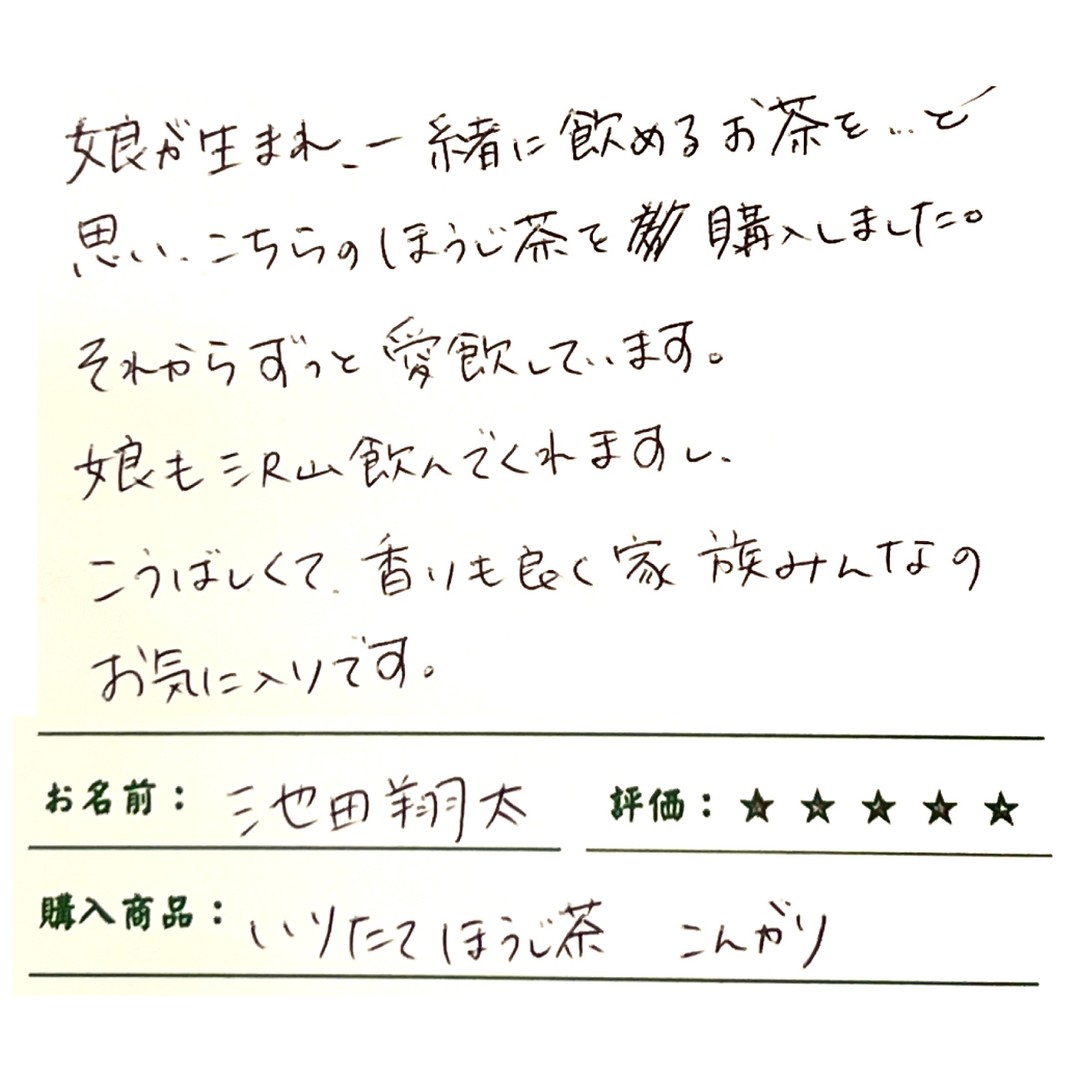 娘が生まれ、一緒に飲めるお茶を…と
思い、こちらのほうじ茶を購入しました。
それからずっと愛飲しています。
娘も沢山飲んでくれますし、
こうばしくて、香りも良く家族みんなの
お気に入りです。
お名前： 池田翔太 評価：★★★★★
購入商品： いりたてほうじ茶 こんがり